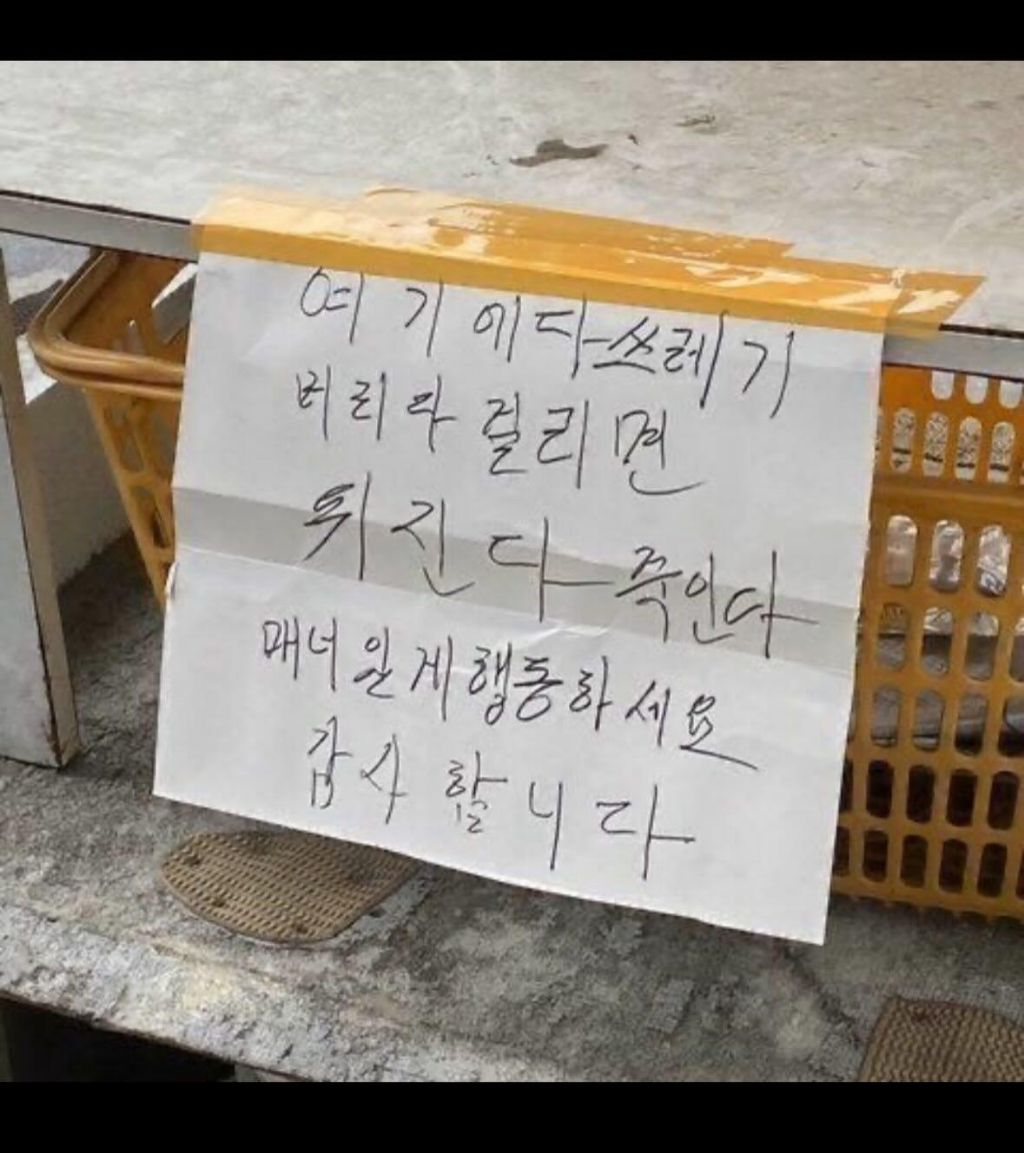 여기에다 쓰레기
버리다 걸리면
뒤진다 죽인다
매너일게 행동하세요
감사할니다